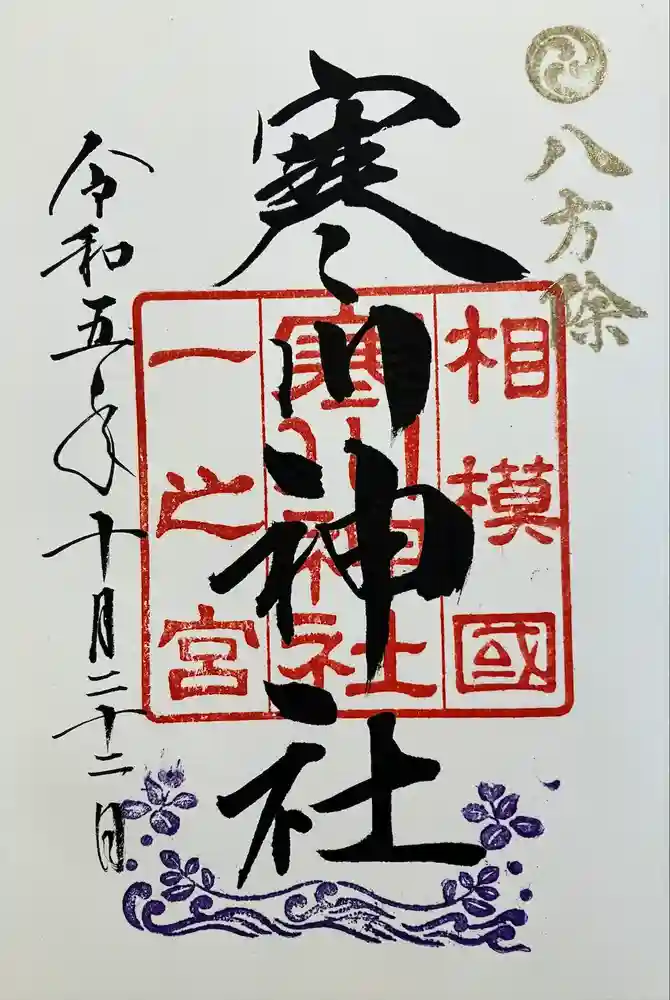 八方除
寒川神社
相模國
寒川神社
一之宮
令和五年十月二十二日